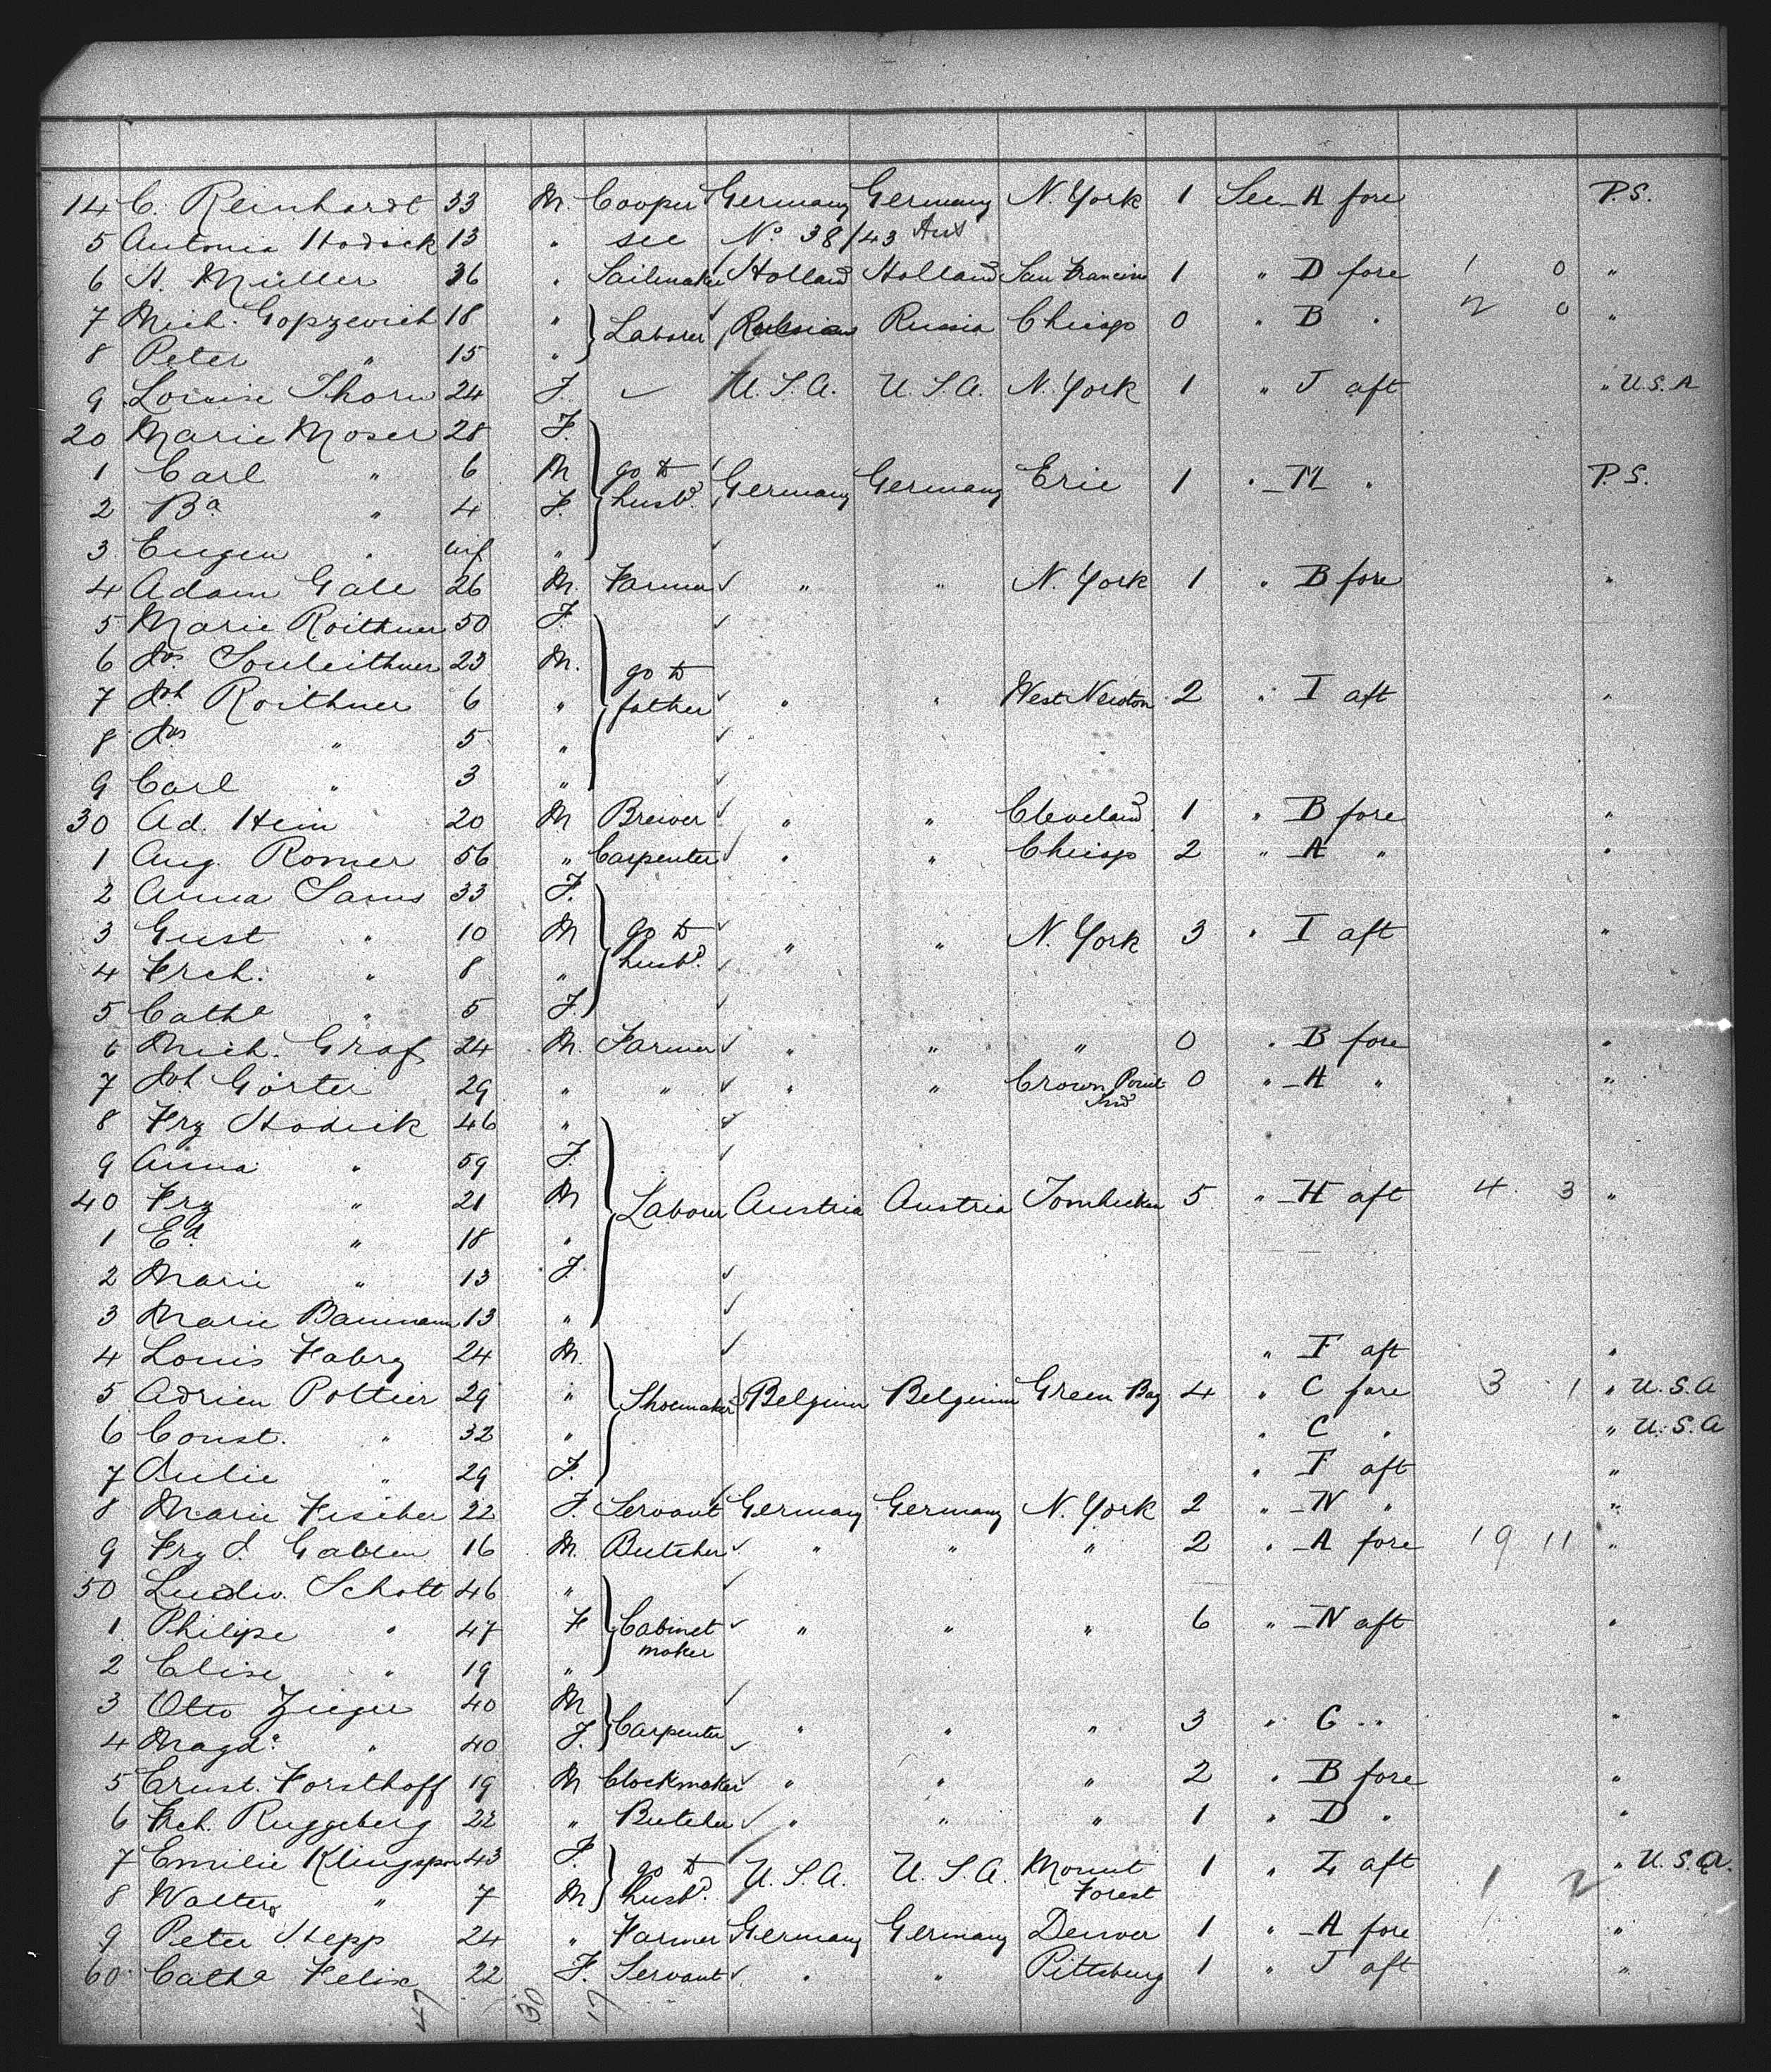 14 C. Reinhardt 33 M. Cooper Germany Germany N. York 1 See A fore P.S.
5 Antonia Hodick 13 " see No. 38/43 Aus
6 H. Müller 36 " Sailmaker Holland Holland San Francisco 1 " D fore 1 0 "
7 Mich. Gopzevich 18 " Laborer Russia Russia Chicago 0 " B " 2 0 "
8 Peter " 15 "
9 Louise Thorn 24 F. U.S.A. U.S.A. N. York 1 " J aft " U.S.A
20 Marie Moser 28 F.
1 Carl " 6 M go to husbd. Germany Germany Erie 1 " M " P.S.
2 Ba " 4 F.
3 Eugen " inf "
4 Adam Gall 26 M. Farmer " " N. York 1 " B fore "
5 Marie Roithner 50 F.
6 Jos. Souleithner 23 M. go to
7 Joh Roithner 6 " father " " West Newton 2 " I aft "
8 Jos " 5 "
9 Carl " 3 "
30 Ad. Hein 20 M Brewer " " Cleveland 1 " B fore "
1 Aug. Romer 56 " Carpenter " " Chicago 2 " A " "
2 Anna 33 F.
3 Gust " 10 M go to " " N. York 3 " I aft "
4 Frch. " 8 " husbd.
5 Catha " 5 F.
6 Mich. Graf 24 M. Farmer " " " 0 " B fore "
7 Joh Görter 29 " " " " Crown Point Ind 0 " A " "
8 Frz Hodick 46 "
9 Anna " 59 F.
40 Frz " 21 M Laborer Austria Austria Tomhicken 5 " H aft 4 3 "
1 Ed. " 18 "
2 Marie " 13 F.
3 Marie Baumann 13 "
4 Louis Fabry 24 M. " F aft "
5 Adrien Pottier 29 " Shoemaker Belgium Belgium Green Bay 4 " C fore 3 1 " U.S.A
6 Const. " 32 " " C " " U.S.A
7 Julie " 29 F. " F aft "
8 Marie Fischer 22 F. Servant Germany Germany N. York 2 " N " "
9 Frz J. Gablen 16 M. Butcher " " " 2 " A fore 19 11 "
50 Ludw. Schott 46 "
1 Philipe " 47 F Cabinet maker " " " 6 " N aft "
2 Elise " 19 "
3 Otto Zieger 40 M Carpenter " " " 3 " G " "
4 Magda. " 40 F.
5 Ernst. Forsthoff 19 M Clockmaker " " " 2 " B fore "
6 Frch. Ruggeberg 22 " Butcher " " " 1 " D " "
7 Emilie Klingspor 43 F. go to U.S.A. U.S.A. Mount Forest 1 " L aft 1 2 " U.S.A.
8 Walter " 7 M husbd.
9 Peter Stepp 24 " Farmer Germany Germany Denver 1 " A fore "
60 Catha Felix 22 F. Servant " " Pittsburg 1 " J aft "
47 30 17